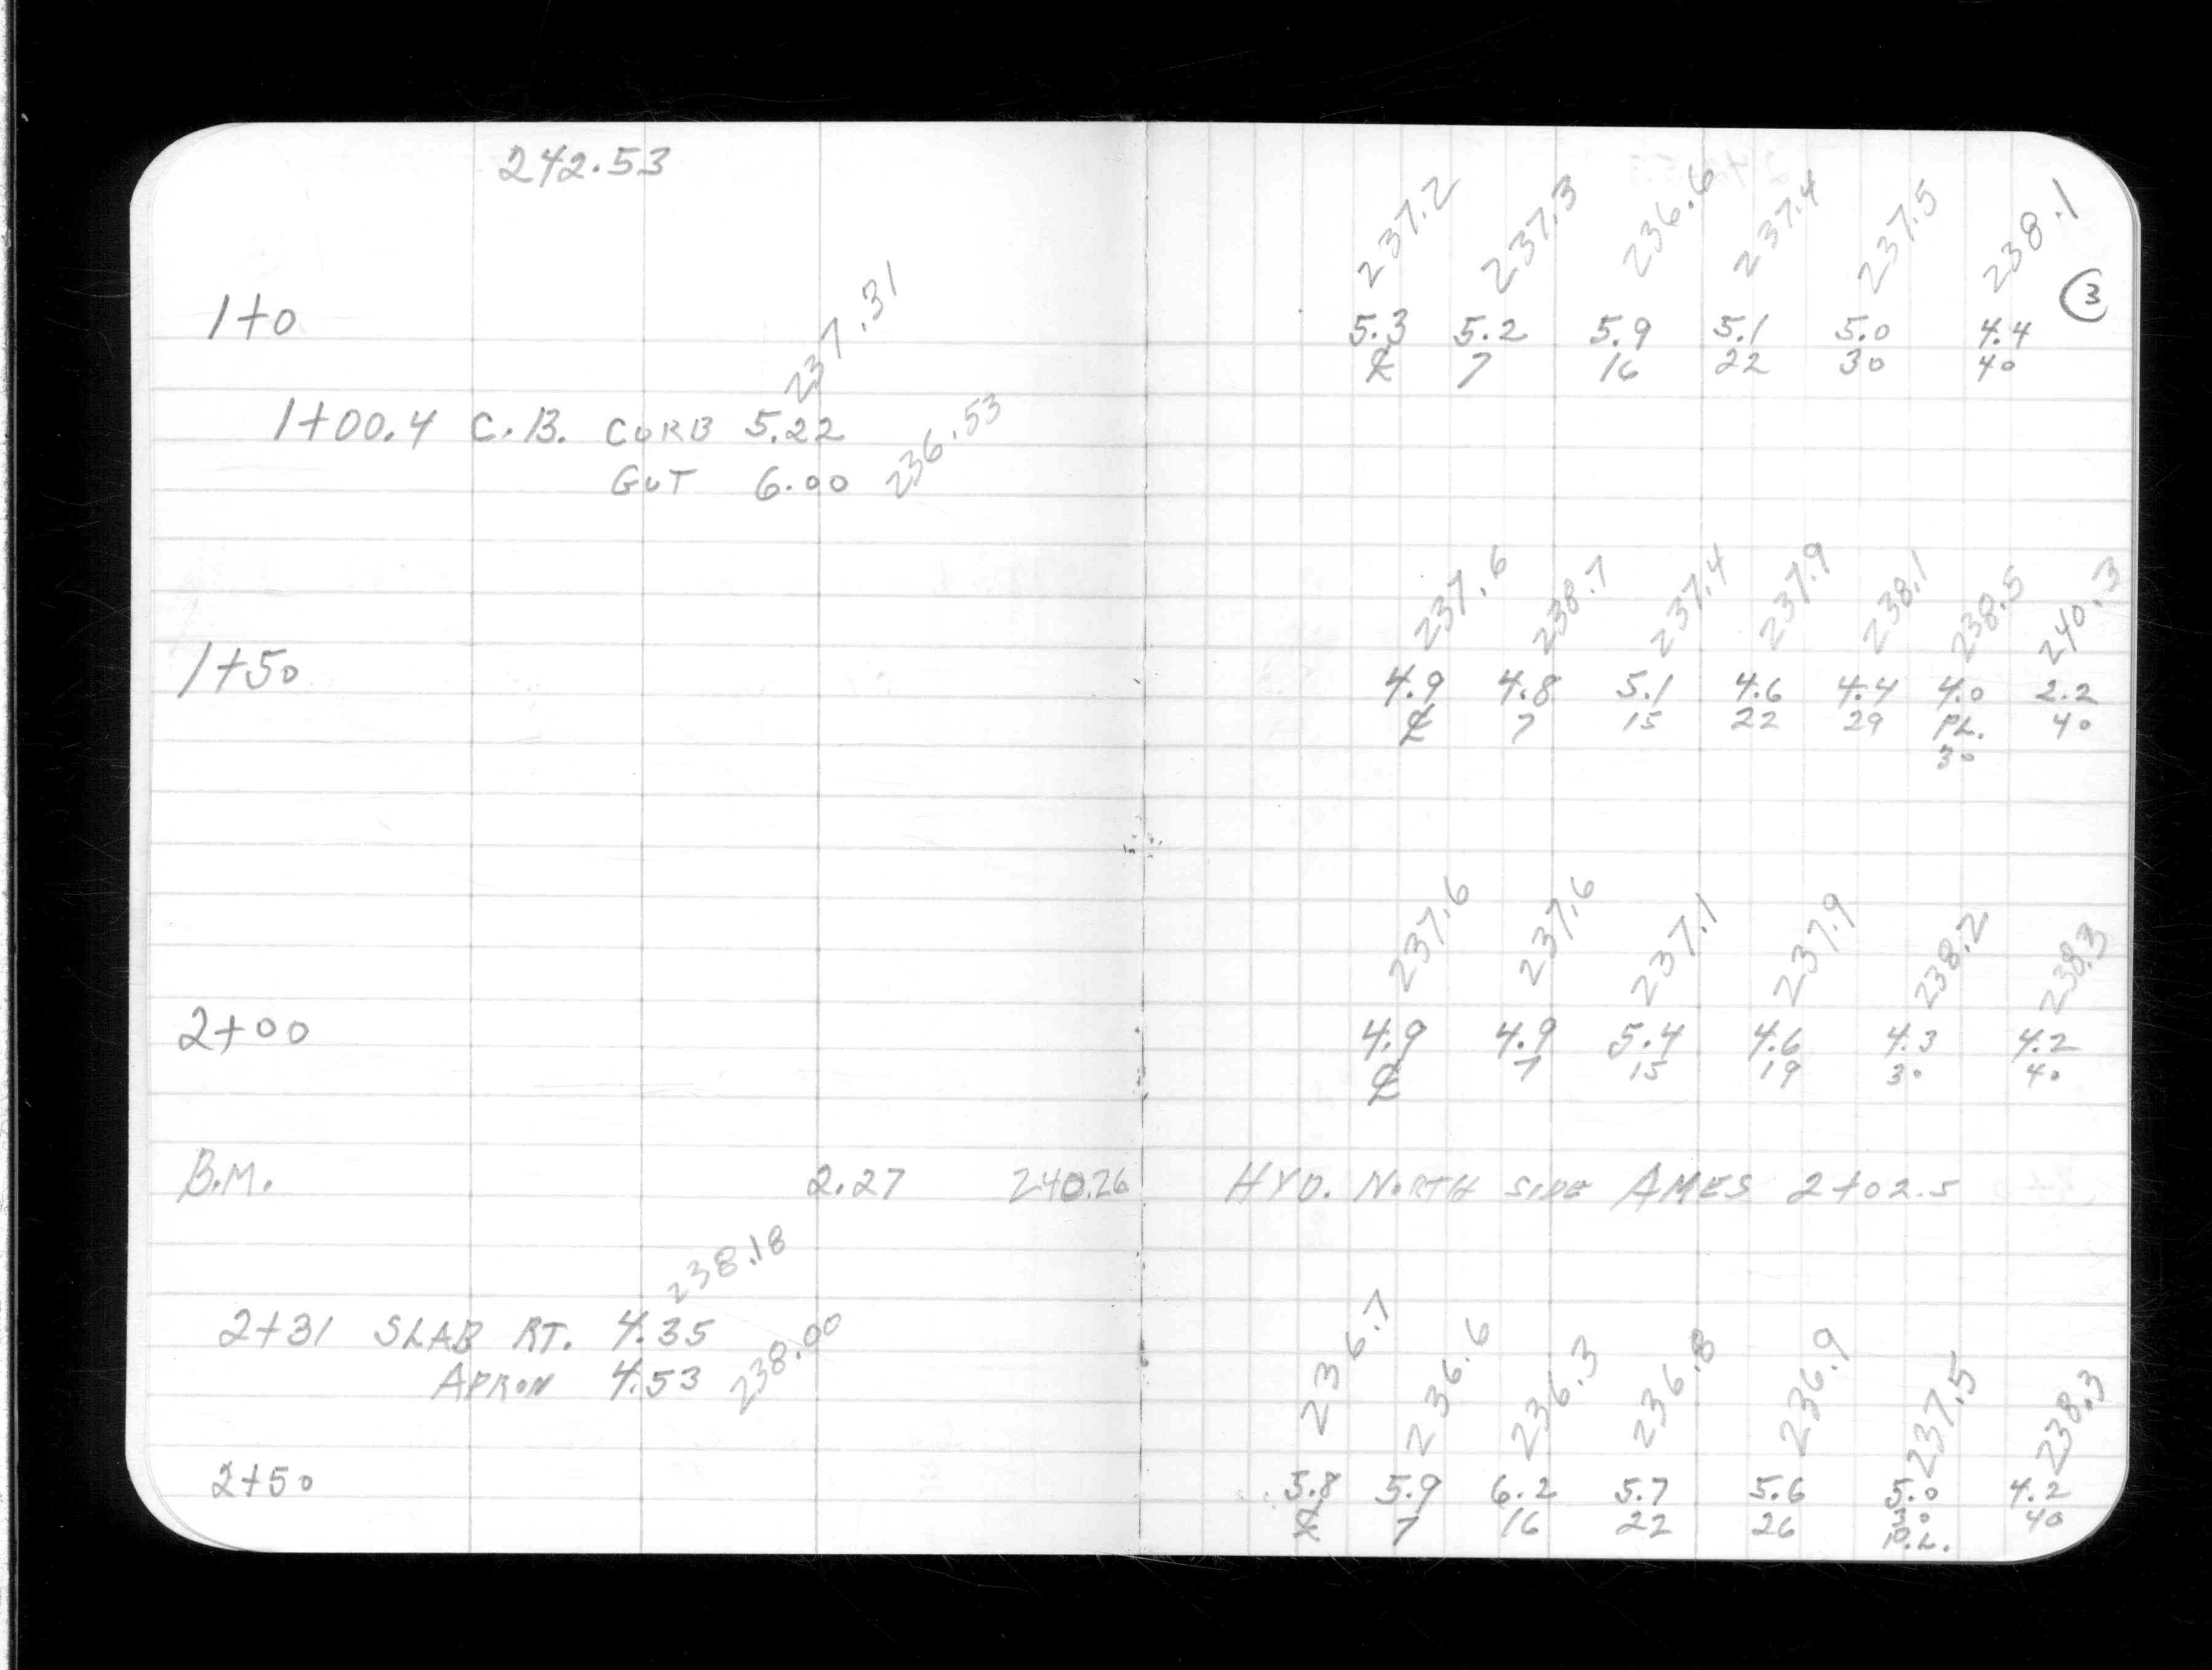 242.53
237.2 237.3 236.6 237.4 237.5 238.1
3
1+0 5.3 5.2 5.9 5.1 5.0 4.4
℄ 7 16 22 30 40
237.31
1+00.4 C.B. CURB 5.22
GUT 6.00 236.53
237.6 238.7 237.4 237.9 238.1 238.5 240.3
1+50 4.9 4.8 5.1 4.6 4.4 4.0 2.2
℄ 7 15 22 29 PL. 40
30
237.6 237.6 237.1 237.9 238.2 238.3
2+00 4.9 4.9 5.4 4.6 4.3 4.2
℄ 7 15 19 30 40
B.M. 2.27 240.26 HYD. NORTH SIDE AMES 2+02.5
238.18
2+31 SLAB RT. 4.35
APRON 4.53 238.00
236.7 236.6 236.3 236.8 236.9 237.5 238.3
2+50 5.8 5.9 6.2 5.7 5.6 5.0 4.2
℄ 7 16 22 26 30 40
P.L.